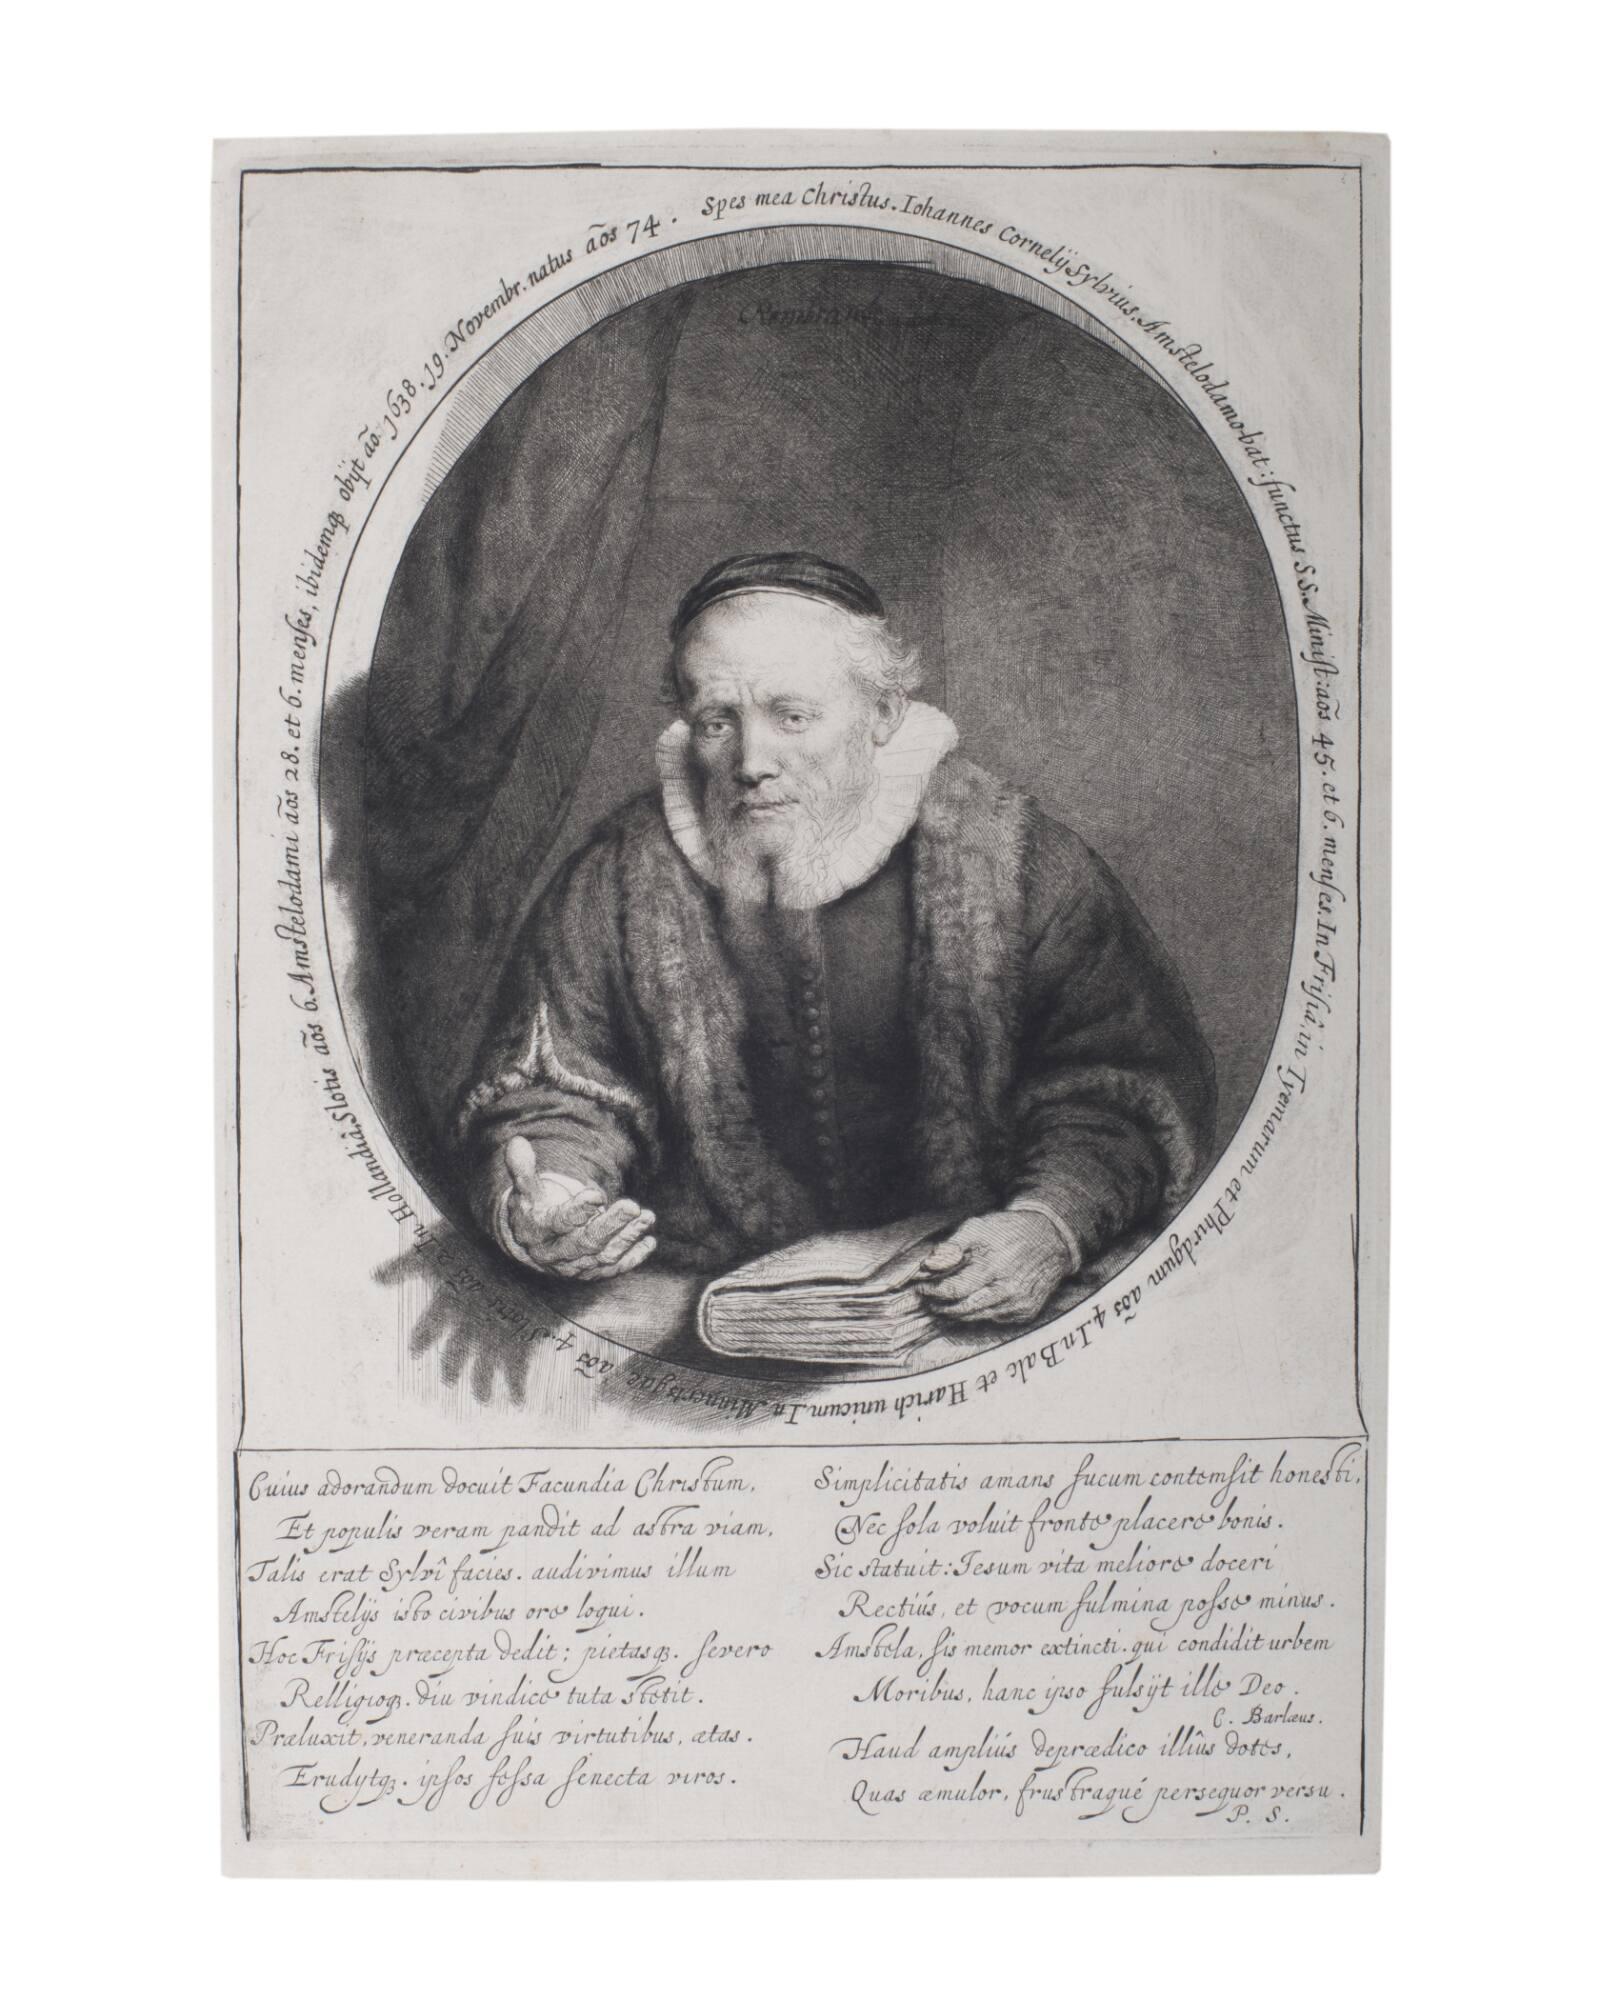 Spes mea Christus. Iohannes Cornelÿ Sylvius. Amstelodamo-bat: functus S S. Minist: aõs 45. et 6. menses. In Frisiâ, in Tyemarum et Phirdgum aõs 4. In Balc et Harich unicum. In Minnertsgae aõs 4. Slotis aõs 2. In Hollandiâ, Slotis aõs 6. Amstelodami aõs 28. et 6. menses, ibidemqȝ obÿt aõ. 1638. 19. Novembr. natus aõs 74.
Rembrandt
Cuius adorandum docuit Facundia Christum,
Et populis veram pandit ad astra viam,
Talis erat Sylvî facies. audivimus illum
Amstelÿs isto civibus ore loqui.
Hoc Frisÿs præcepta dedit; pietasqȝ. severo
Relligioqȝ. diu vindice tuta stetit.
Præluxit, veneranda suis virtutibus, ætas.
Erudytqȝ. ipsos fessa senecta viros.
Simplicitatis amans fucum contemsit honesti,
Nec sola voluit fronte placere bonis.
Sic statuit: Iesum vita meliore doceri
Rectiús, et vocum fulmina posse minus.
Amstela, sis memor extincti. qui condidit urbem
Moribus, hanc ipso fulsÿt ille Deo.
C. Barlæus.
Haud ampliús deprædico illîus dotes,
Quas æmulor, frustraqué persequor versu.
P. S.